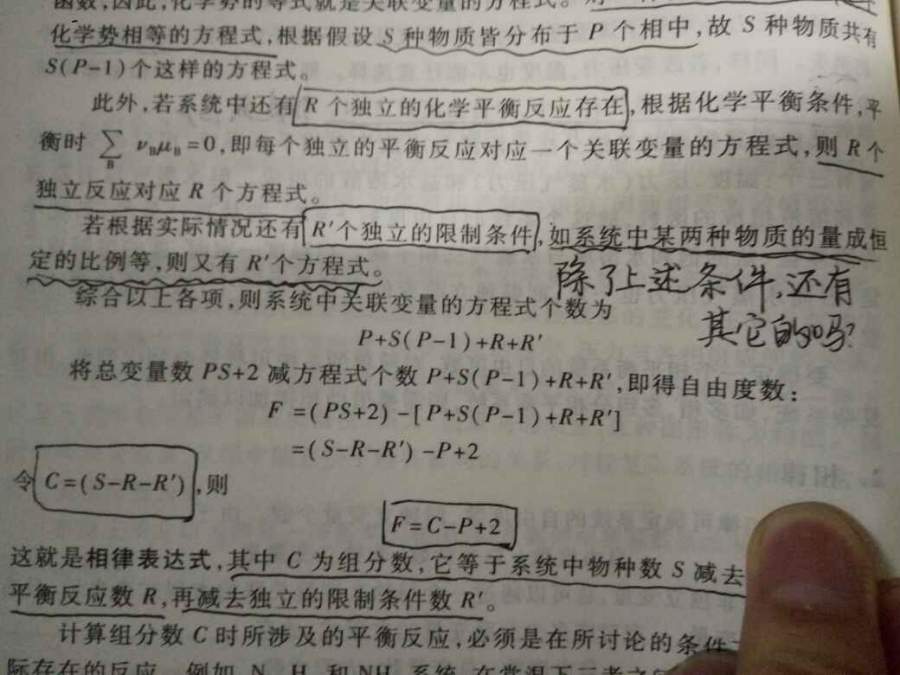 函数,因此,化学势的等式就是关联变量的方程式。
化学势相等的方程式,根据假设 S 种物质皆分布于 P 个相中,故 S 种物质共有
S(P-1)个这样的方程式。
此外,若系统中还有 R 个独立的化学平衡反应存在,根据化学平衡条件,平
衡时 ∑ νBμB=0,即每个独立的平衡反应对应一个关联变量的方程式,则 R 个
B
独立反应对应 R 个方程式。
若根据实际情况还有 R′个独立的限制条件,如系统中某两种物质的量成恒
定的比例等,则又有 R′个方程式。
除了上述条件,还有
其它的吗?
综合以上各项,则系统中关联变量的方程式个数为
P+S(P-1)+R+R′
将总变量数 PS+2 减方程式个数 P+S(P-1)+R+R′,即得自由度数:
F =(PS+2) -[P+S(P-1)+R+R′]
=(S-R-R′) -P+2
令 C=(S-R-R′),则
F=C-P+2
这就是相律表达式,其中 C 为组分数,它等于系统中物种数 S 减去
平衡反应数 R,再减去独立的限制条件数 R′。
计算组分数 C 时所涉及的平衡反应,必须是在所讨论的条件
际存在的反应。例如 N H 和 NH 系统,在常温下三者之